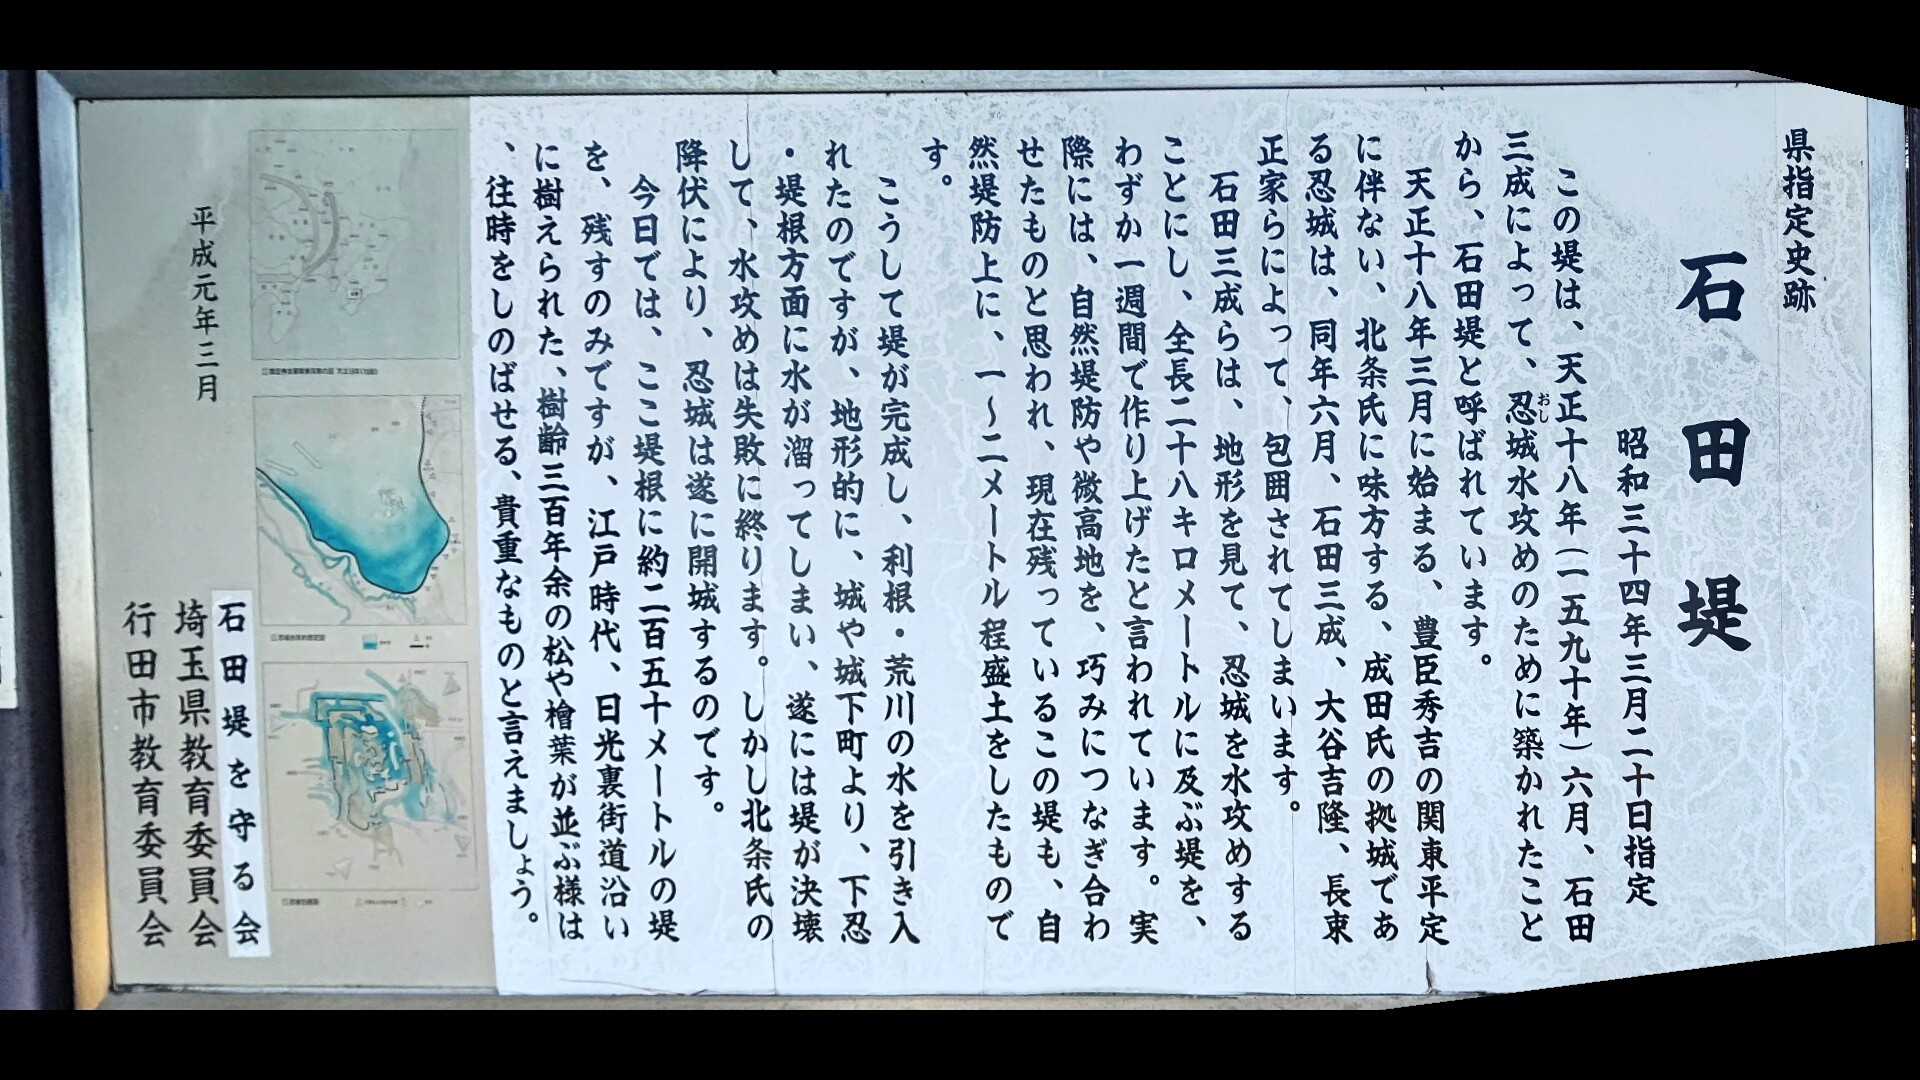 県指定史跡
石田堤
昭和三十四年三月二十日指定
この堤は、天正十八年（一五九十年）六月、石田
三成によって、忍城水攻めのために築かれたこと
おし
から、石田堤と呼ばれています。
天正十八年三月に始まる、豊臣秀吉の関東平定
に伴ない、北条氏に味方する、成田氏の拠城であ
る忍城は、同年六月、石田三成、大谷吉隆、長束
正家らによって、包囲されてしまいます。
石田三成らは、地形を見て、忍城を水攻めする
ことにし、全長二十八キロメートルに及ぶ堤を、
わずか一週間で作り上げたと言われています。実
際には、自然堤防や微高地を、巧みにつなぎ合わ
せたものと思われ、現在残っているこの堤も、自
然堤防上に、一～二メートル程盛土をしたもので
す。
こうして堤が完成し、利根・荒川の水を引き入
れたのですが、地形的に、城や城下町より、下忍
・堤根方面に水が溜ってしまい、遂には堤が決壊
して、水攻めは失敗に終ります。しかし北条氏の
降伏により、忍城は遂に開城するのです。
今日では、ここ堤根に約二百五十メートルの堤
を、残すのみですが、江戸時代、日光裏街道沿い
に樹えられた、樹齢三百年余の松や檜葉が並ぶ様は
、往時をしのばせる、貴重なものと言えましょう。
平成元年三月
石田堤を守る会
埼玉県教育委員会
行田市教育委員会